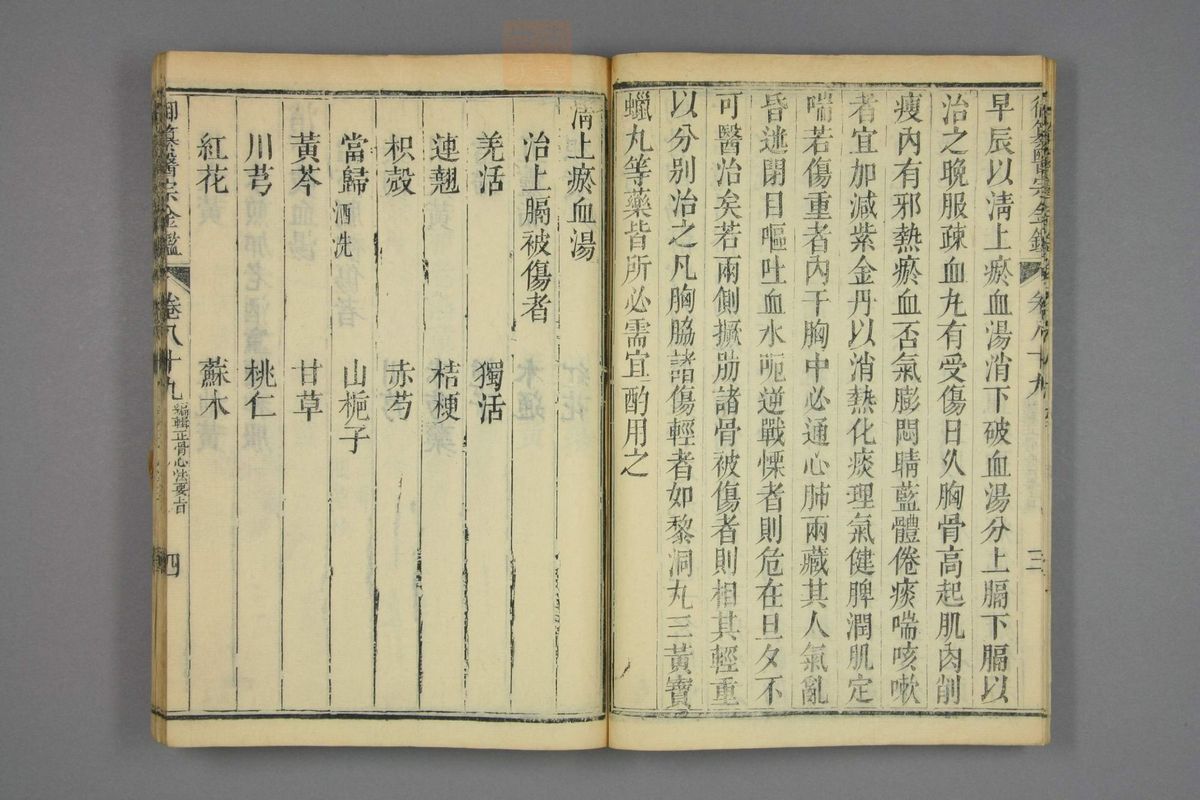 御纂醫宗金鑑 卷八十九 三
早辰以淸上瘀血湯消下破血湯分上膈下膈以
治之晚服疎血丸有受傷日久胸骨高起肌肉削
瘦內有邪熱瘀血否氣膨悶睛藍體倦痰喘咳嗽
者宜加減紫金丹以消熱化痰理氣健脾潤肌定
喘若傷重者內干胸中必通心肺兩藏其人氣亂
昏迷閉目嘔吐血水呃逆戰慄者則危在旦夕不
可醫治矣若兩側撅肋諸骨被傷者則相其輕重
以分別治之凡胸脇諸傷輕者如黎洞丸三黃寶
蠟丸等藥皆所必需宜酌用之
淸上瘀血湯
治上膈被傷者
羗活 獨活
連翹 桔梗
枳殼 赤芍
當歸酒洗 山梔子
黃芩 甘草
川芎 桃仁
紅花 蘇木
御纂醫宗金鑑 卷八十九 編輯正骨心法要旨 四